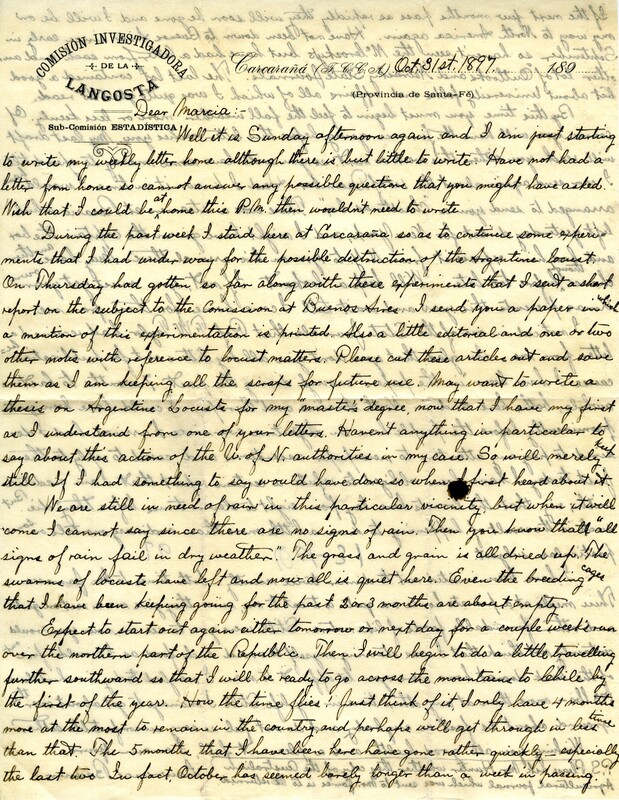 COMISIÓN INVESTIGADORA
DE LA
LANGOSTA
Sub-Comisión ESTADÍSTICA
Carcarañá (F. C. C. A.) Oct. 31st. 1897. 189
(Provincia de Santa-Fé)
Dear Marcia:-
Well it is Sunday afternoon again and I am just starting
to write my weekly letter home although there is but little to write. Have not had a
letter from home so cannot answer any possible questions that you might have asked.
Wish that I could be at home this P.M. then wouldn't need to write.
During the past week I staid here at Carcaraña so as to continue some experi-
ments that I had under way for the possible distruction of the Argentine locust.
On Thursday had gotten so far along with these experiments that I sent a short
report on the subject to the Comission at Buenos Aires. I send you a paper in which
a mention of this experimentation is printed. Also a little editorial and one or two
other notes with reference to locust matters. Please cut these articles out and save
them as I am keeping all the scraps for future use. May want to write a
thesis on Argentine Locusts for my "master's" degree, now that I have my first
as I understand from one of your letters. Haven't anything in particular to
say about this action of the U. of N. authorities in my case. So will merely keep
still. If I had something to say would have done so when I first heard about it.
We are still in need of rain in this particular vicinity, but when it will
come I cannot say since there are no signs of rain. Then you know that "all
signs of rain fail in dry weather." The grass and grain is all dried up. The
swarms of locusts have left and now all is quiet here. Even the breeding cages
that I have been keeping going for the past 2 or 3 months are about empty.
Expect to start out again either tomorrow or next day for a couple week's run
over the northern part of the Republic. Then I will begin to do a little travelling
further southward so that I will be ready to go across the mountains to Chile by
the first of the year. How the time flies! Just think of it I only have 4 months
more at the most to remain in the country, and perhaps will get through in less time
than that. The 5 months that I have been here have gone rather quickly - especially
the last two. In fact, October has seemed barely longer than a week in passing.